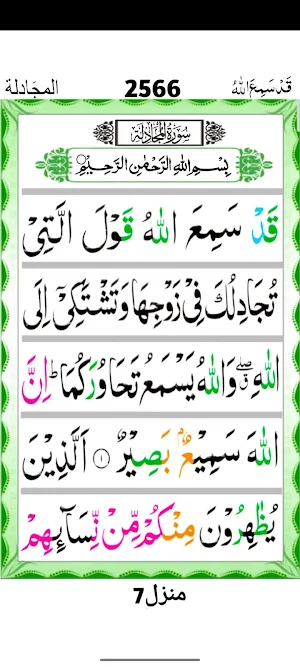 المجادلة 2566 قَدۡ سَمِعَ اللّٰهُ
سُوۡرَةُ الۡمُجَادِلَة
بِسۡمِ اللّٰهِ الرَّحۡمٰنِ الرَّحِيۡمِ
قَدۡ سَمِعَ اللّٰهُ قَوۡلَ الَّتِىۡ
تُجَادِلُكَ فِىۡ زَوۡجِهَا وَتَشۡتَكِىۡۤ اِلَى
اللّٰهِ ۖ وَاللّٰهُ يَسۡمَعُ تَحَاوُرَكُمَا ؕ اِنَّ
اللّٰهَ سَمِيۡعٌۢ بَصِيۡرٌ ١ اَلَّذِيۡنَ
يُظٰهِرُوۡنَ مِنۡكُمۡ مِّنۡ نِّسَآئِهِمۡ
منزل7